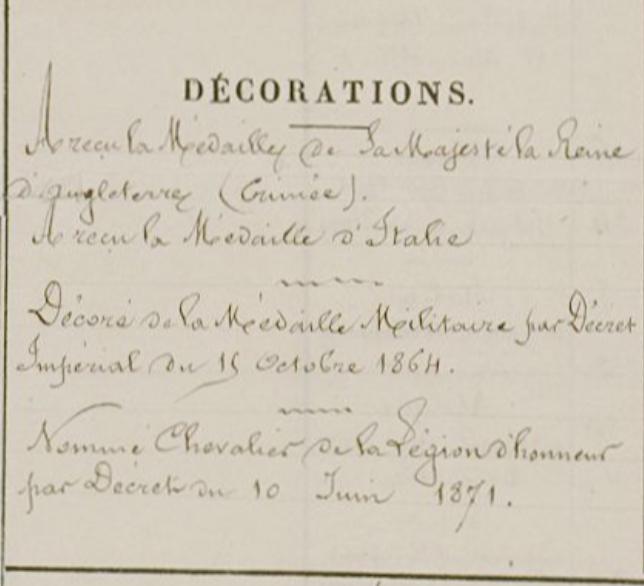 DÉCORATIONS.
A reçu la Médaille de Sa Majesté la Reine
d'Angleterre (Crimée).
A reçu la Médaille d'Italie
Décoré de la Médaille Militaire par Décret
Impérial du 15 Octobre 1864.
Nommé Chevalier de la Légion d'honneur
par Décret du 10 Juin 1871.